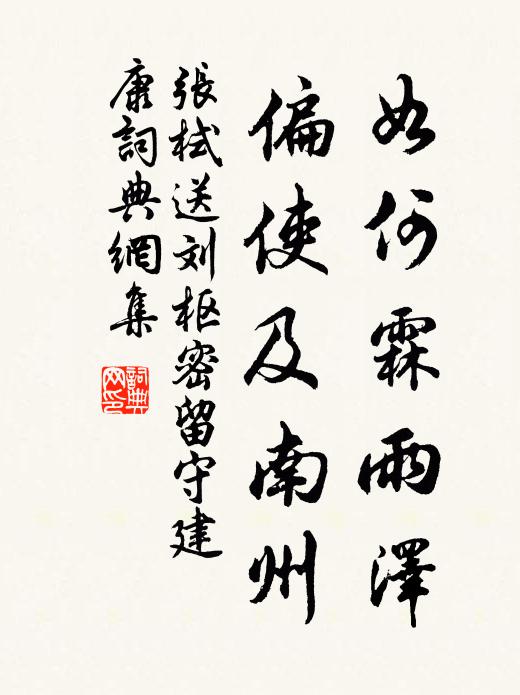 如何霖雨澤
偏使及南州
張栻送刘枢密留守建
康詞典網集
詞典网印